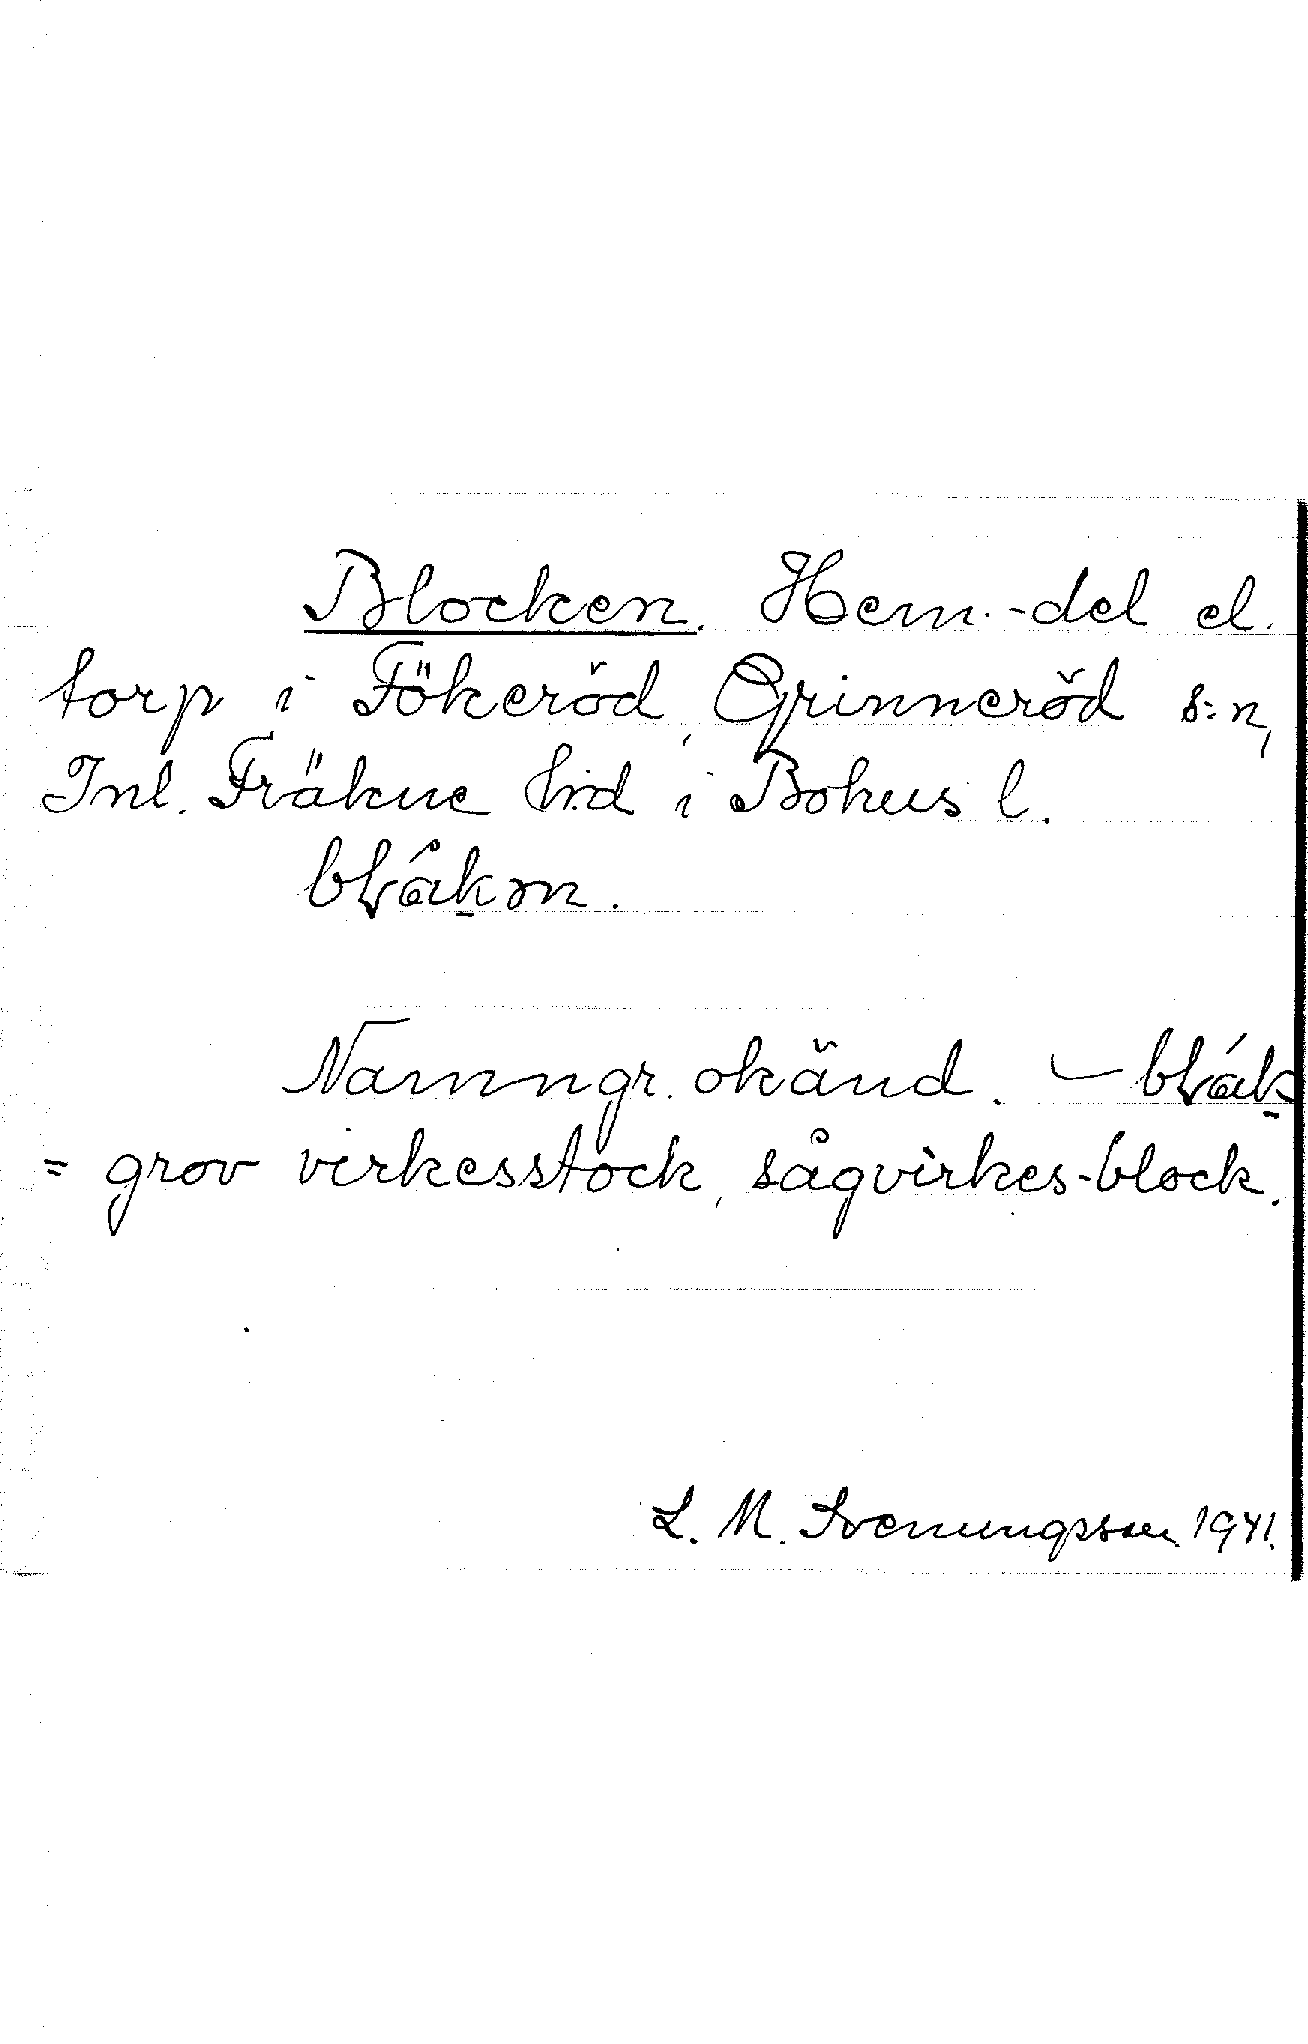 Blocken. Hem.-del el.
torp i Fökeröd, Grinneröd s:n,
Inl. Fräkne h:d i Bohus l.
Namngr. okänd. —
= grov virkesstock, sågvirkes-block.
L. M. Svenungsson 1941.